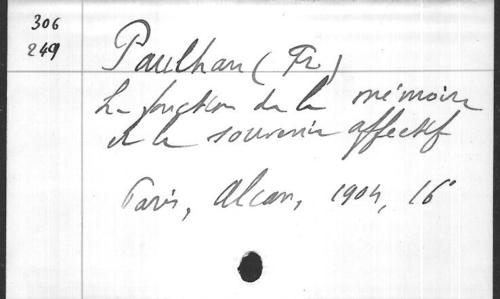 306
249
Paulhan (Fr)
La fonction de la mémoire
et le souvenir affectif
Paris, Alcan, 1904, 16°